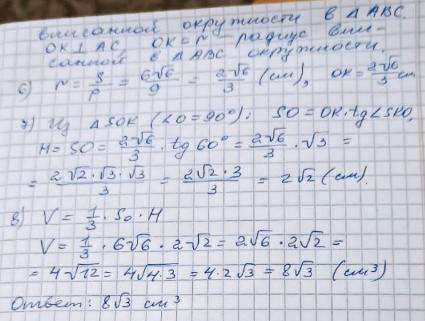 вписанной окружности в ΔABC.
OK⊥AC, OK = r – радиус впи-
санной в ΔABC окружности.
6) r = S/p = 6√6/9 = 2√6/3 (см), OK = 2√6/3 см
7) Из ΔSOK (∠O = 90°): SO = OK·tg∠SKO,
H = SO = 2√6/3 · tg 60° = 2√6/3 · √3 =
= 2√2·√3·√3/3 = 2√2·3/3 = 2√2 (см).
8) V = 1/3 · Sо · H
V = 1/3 · 6√6 · 2√2 = 2√6 · 2√2 =
= 4√12 = 4√4·3 = 4·2√3 = 8√3 (см³)
Ответ: 8√3 см³